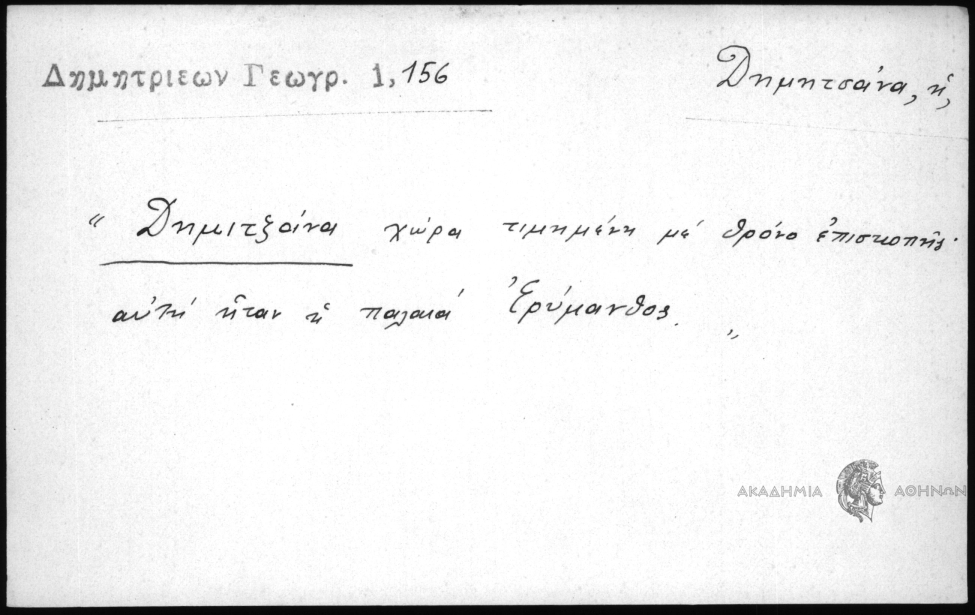 Δημητριεων Γεωγρ. 1, 156
Δημητσάνα, ἡ,
“ Δημιτζάνα χώρα τιμημένη μέ θρόνο ἐπισκοπῆς·
αὐτή ἦταν ἡ παλαιά Ἐρύμανθος. „
ΑΚΑΔΗΜΙΑ ΑΘΗΝΩΝ